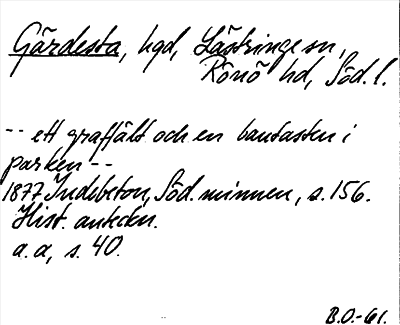 Gärdesta, hgd, Lästringe sn,
Rönö hd, Söd. l.
-- ett graffält och en bautasten i
parken --
1877 Indebetou, Söd. minnen, s. 156.
Hist. anteckn.
a. a, s. 40.
B.O.-61.